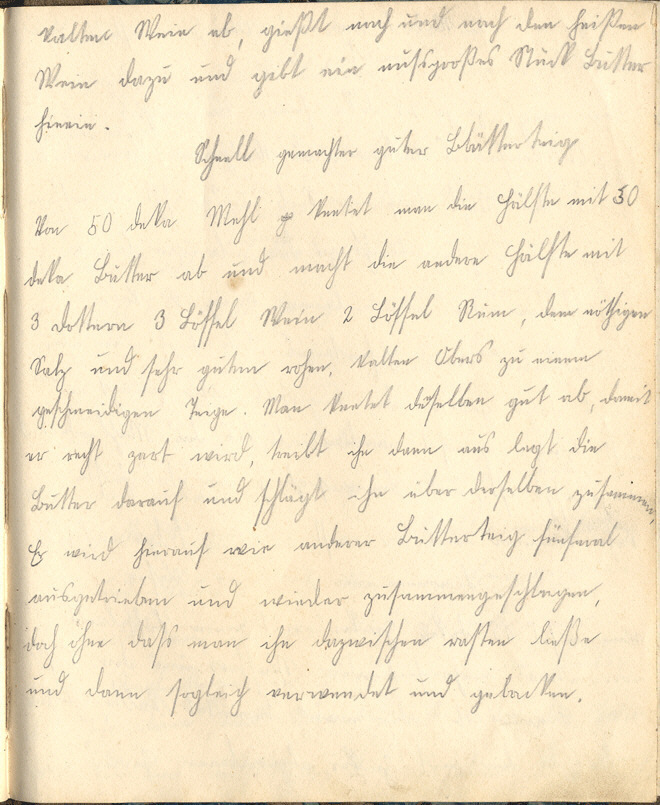 kalten Wein ab, gießt nach und nach den heißen
Wein dazu und gibt ein nußgroßes Stück Butter
hinein.
Schnell gemachter guter Blätterteig
Von 50 deka Mehl knetet man die Hälfte mit 50
deka Butter ab und macht die andere Hälfte mit
3 Dottern 3 Löffel Wein 2 Löffel Rum, dem nöthigen
Salz und sehr gutem rohen, kalten Obers zu einem
geschmeidigen Teige. Man knetet denselben gut ab, damit
er recht zart wird, treibt ihn dann aus legt die
Butter darauf und schlägt ihn über derselben zusammen,
Er wird hierauf wie anderer Butterteig fünfmal
ausgetrieben und wieder zusammengeschlagen,
doch ohne dass man ihn dazwischen rasten ließe
und dann sogleich verwendet und gebacken.